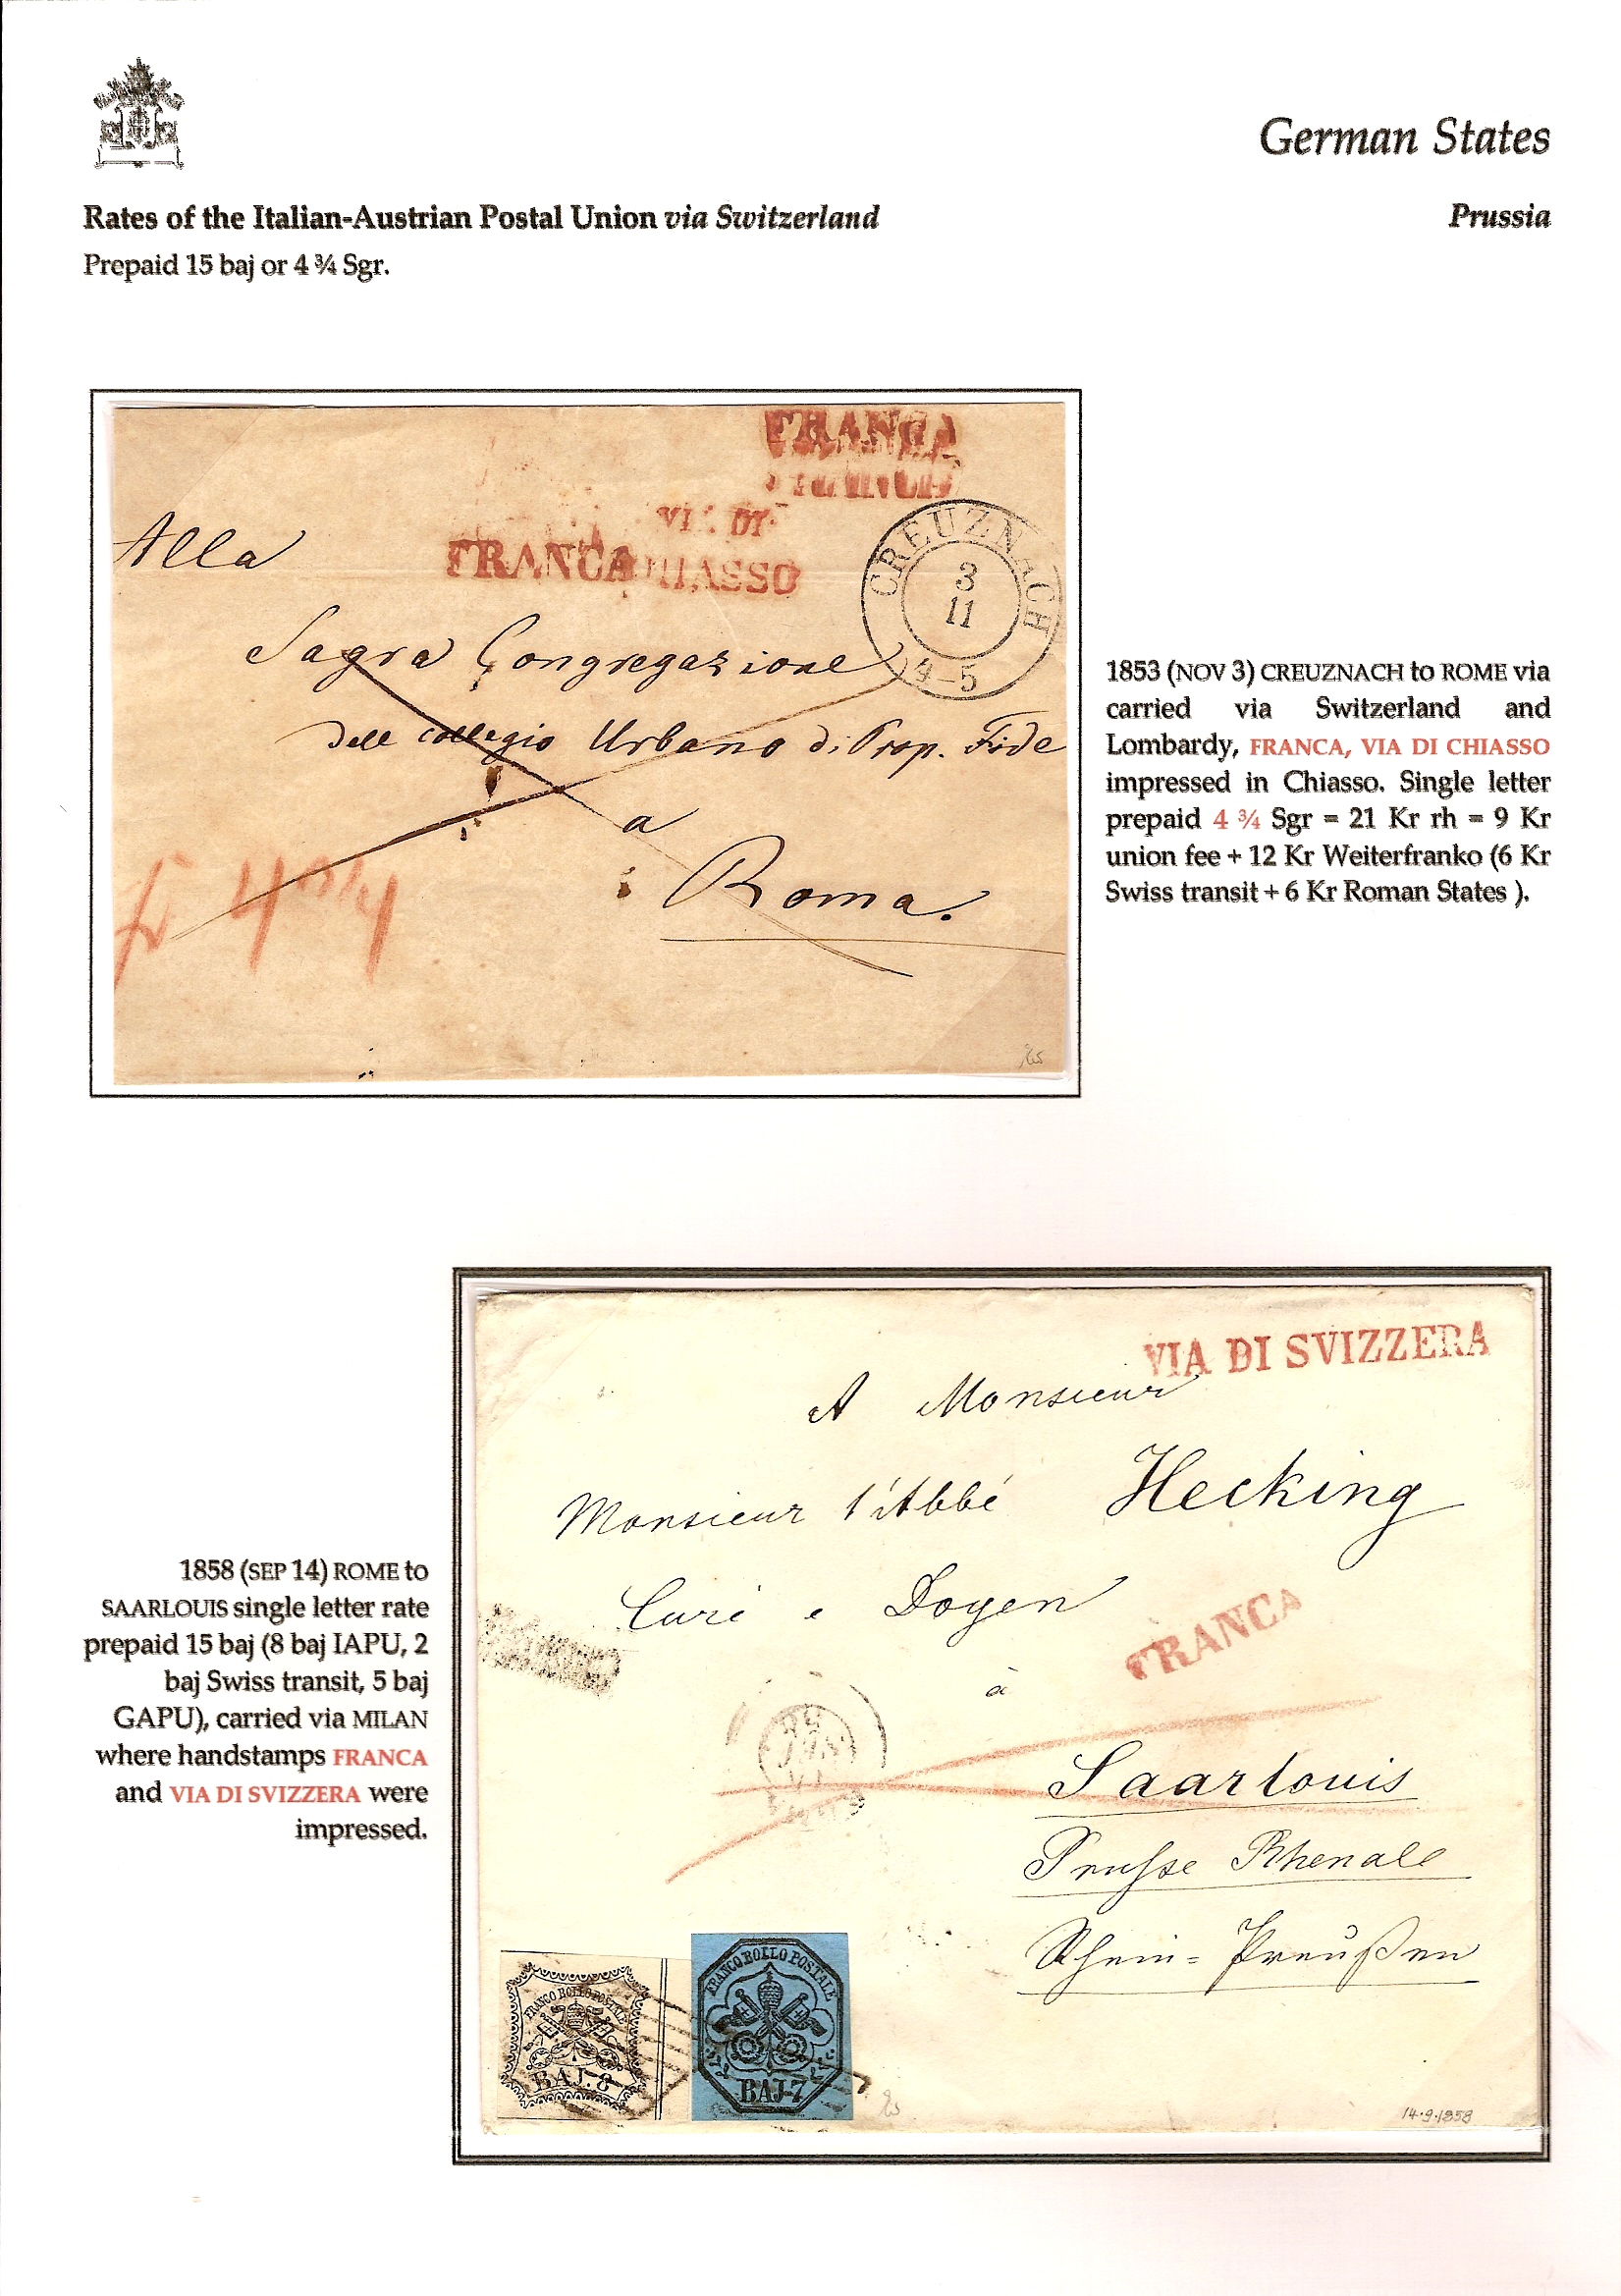 German States
Rates of the Italian-Austrian Postal Union via Switzerland
Prussia
Prepaid 15 baj or 4 ¾ Sgr.
FRANCA
FRANCA
VIA DI
FRANCA CHIASSO
CREUZNACH
3
11
4-5
Alla
Sagra Congregazione
dell collegio Urbano di Prop. Fide
a
Roma.
f 4 3/4
1853 (NOV 3) CREUZNACH to ROME via
carried via Switzerland and
Lombardy, FRANCA, VIA DI CHIASSO
impressed in Chiasso. Single letter
prepaid 4 ¾ Sgr = 21 Kr rh = 9 Kr
union fee + 12 Kr Weiterfranko (6 Kr
Swiss transit + 6 Kr Roman States ).
VIA DI SVIZZERA
A Monsieur
Monsieur l'Abbé Hecking
Curé e Doyen
FRANCA
à
Saarlouis
Prusse Rhenale
Rhein=Preußen
1858 (SEP 14) ROME to
SAARLOUIS single letter rate
prepaid 15 baj (8 baj IAPU, 2
baj Swiss transit, 5 baj
GAPU), carried via MILAN
where handstamps FRANCA
and VIA DI SVIZZERA were
impressed.
FRANCO BOLLO POSTALE
BAJ. 8
FRANCO BOLLO POSTALE
BAJ. 7
14.9.1858